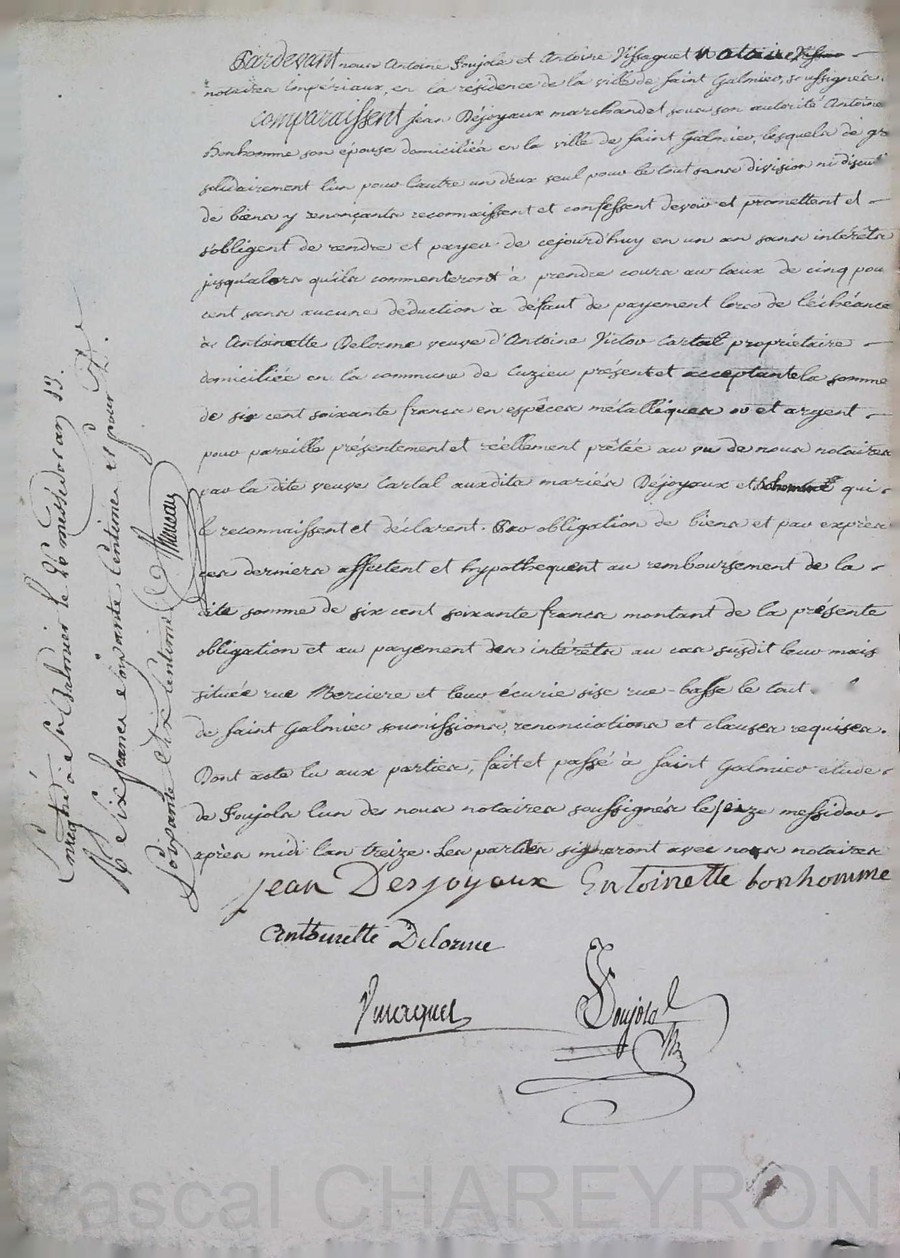 Pardevant nous Antoine Poujols et Antoine Vissaguet notaire
notaires impériaux, en la résidence de la ville de saint Galmier, soussignés.
comparaissent jean Déjoyaux marchand et sous son autorité Antoine
Bonhomme son épouse domiciliés en la ville de saint Galmier, lesquels de gré
solidairement l'un pour l'autre un d'eux seul pour le tout sans division ni discut
de biens y renonçants reconnaissent et confessent devoir et promettent et
s'obligent de rendre et payer de cejourd'huy en un an sans intérêts
jusqu'alors qu'ils commenteront à prendre cours au taux de cinq pour
cent sans aucune déduction à défaut de payement lors de l'échéance
à Antoinette Delorme veuve d'Antoine Victor Cartal propriétaire
domiciliée en la commune de Cuzieu présent et acceptante la somme
de six cent soixante francs en espèces métalliques or et argent
pour pareille présentement et réellement prêtée au vu de nous notaires
par la dite veuve Cartal auxdits mariés Déjoyaux et qui
le reconnaissent et déclarent. Par obligation de biens et par exprès
ces derniers affectent et hypothequent au remboursement de la
dite somme de six cent soixante francs montant de la présente
obligation et au payement des intérêts au cas susdit leur mais
située rue Merciere et leur écurie sise rue-basse le tout
de saint Galmier soumissions, renonciations et clauses requises.
Dont acte lu aux parties, fait et passé à saint Galmier étude
de Poujols l'un des nous notaires soussignés le seize messidor
après midi l'an treize. Les parties signeront avec nous notaires
jean Desjoyaux Entoinette bonhomme
antoinette Delorme
Vissaguet Poujols
Enregistré à St Galmier le 26 messidor an 13.
six francs soixante centimes et pour
soixante six centimes
Pascal CHAREYRON